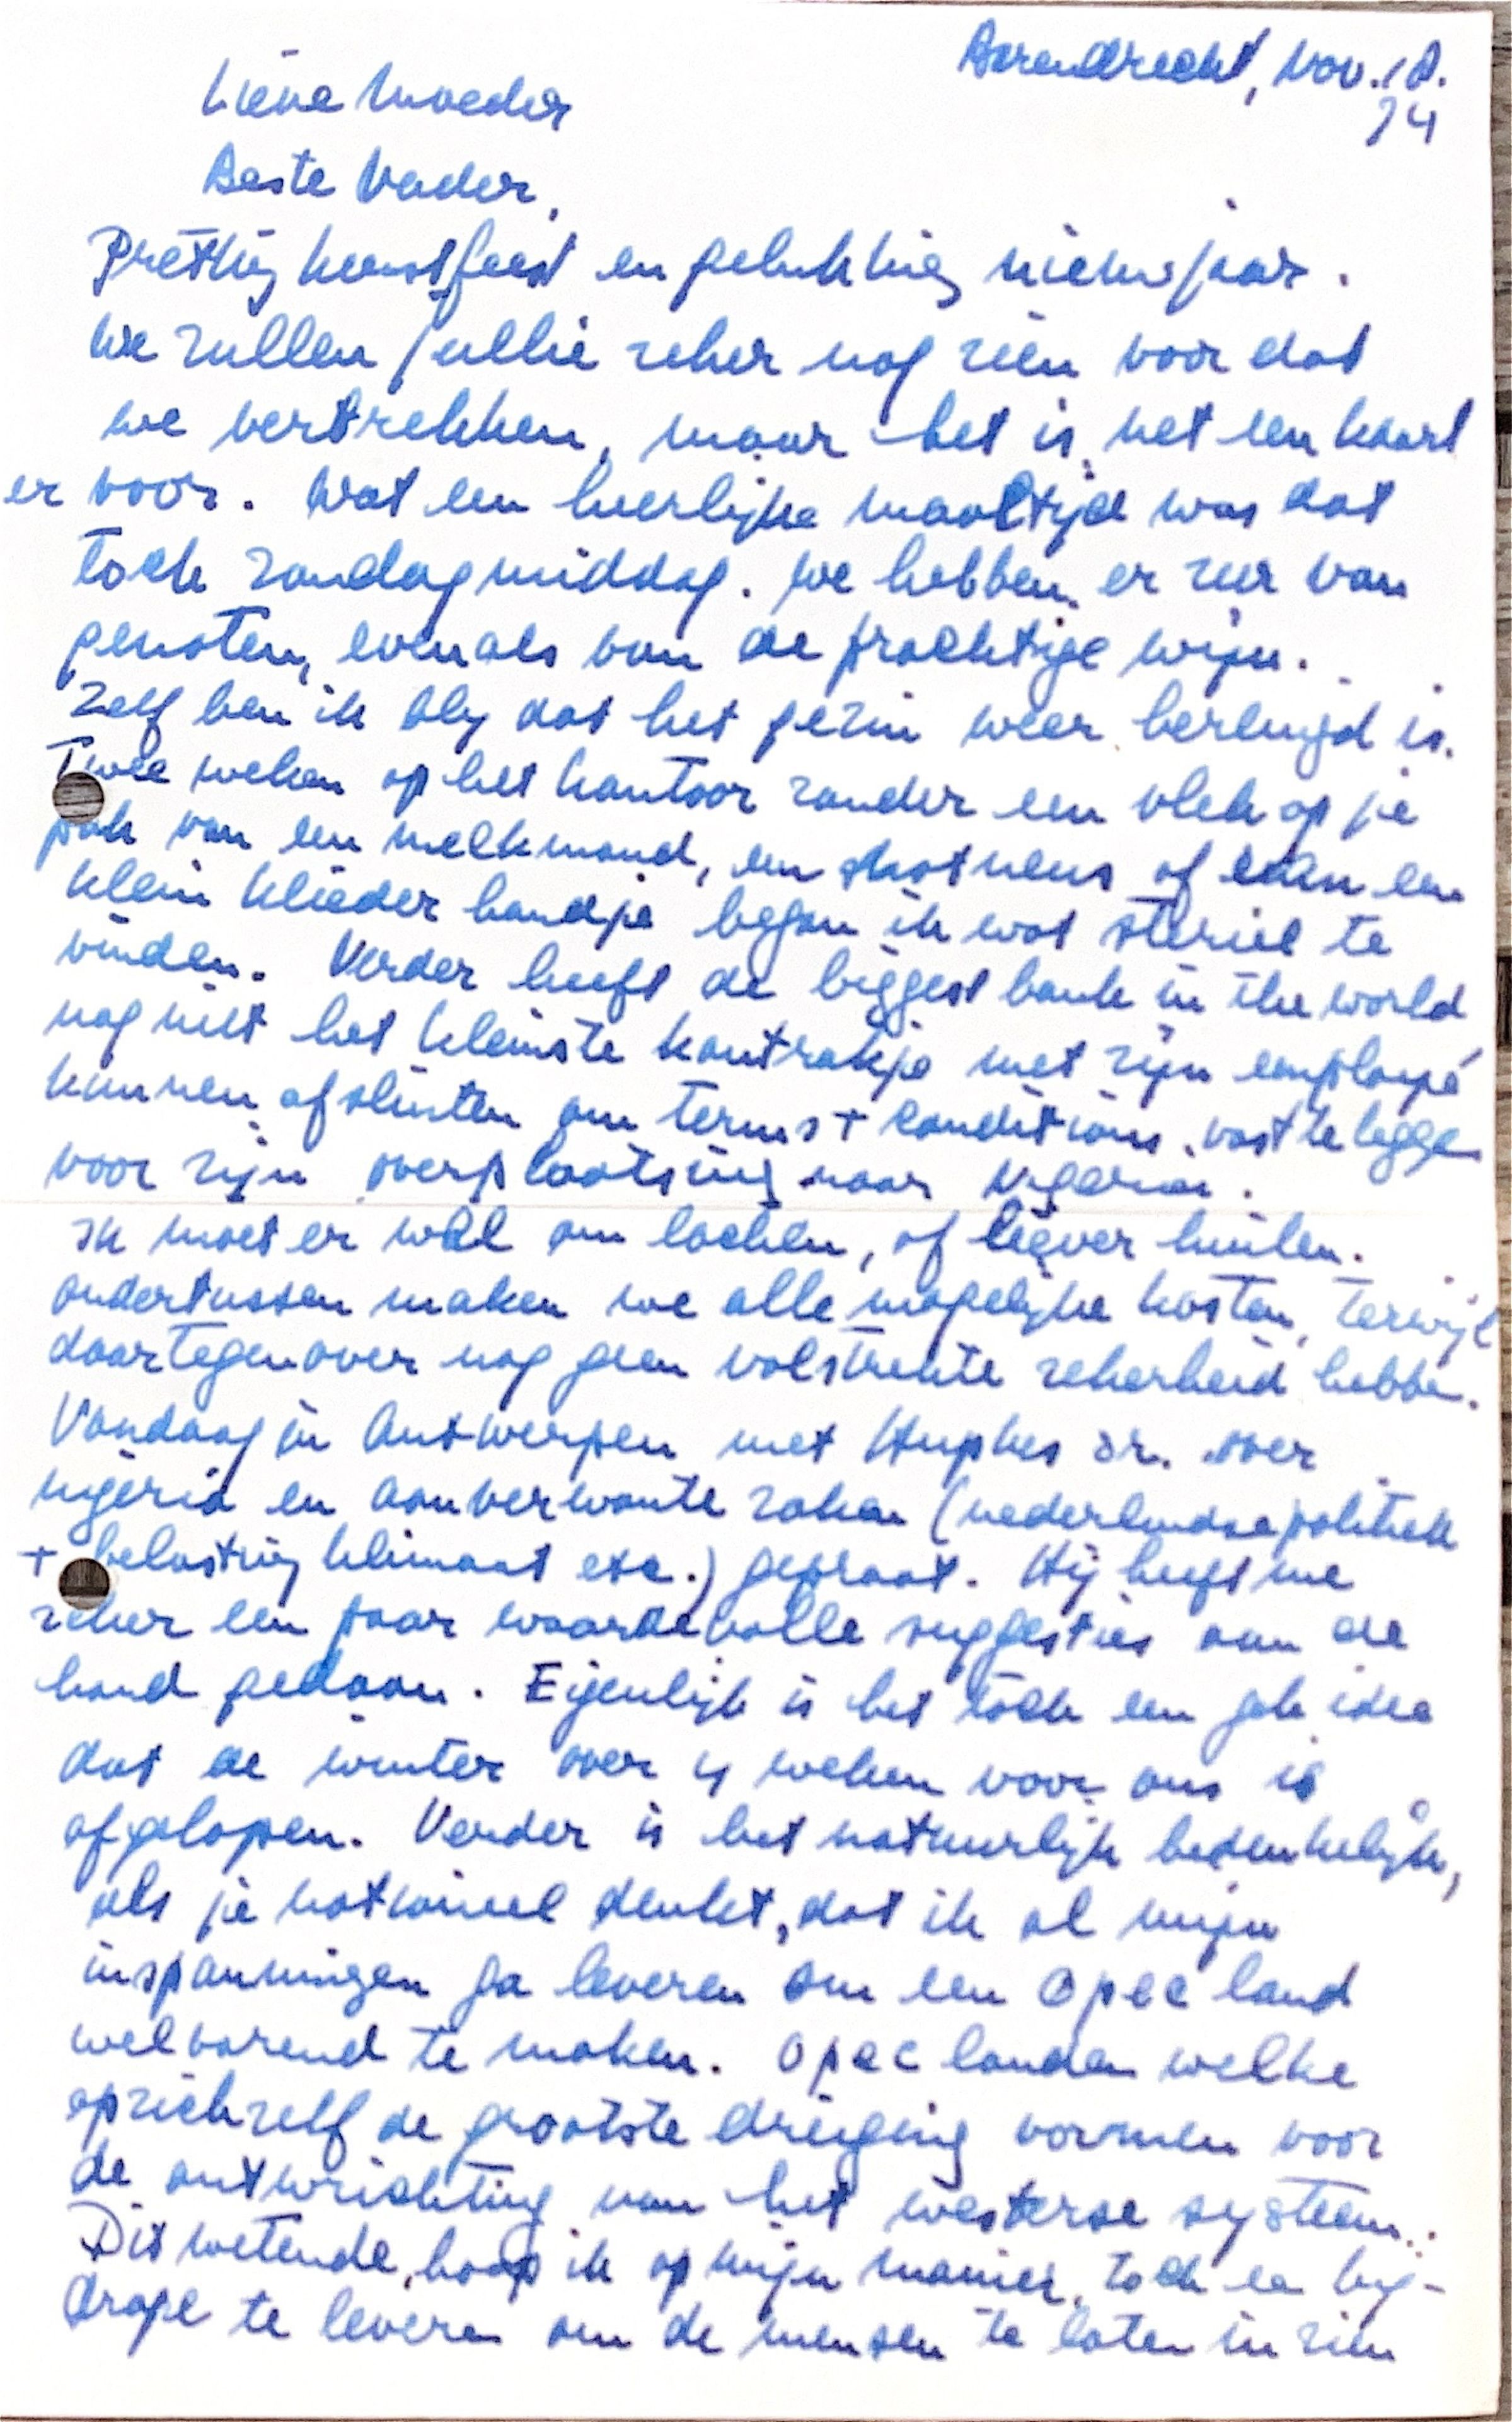 Barendrecht, Nov. 18.
74
Lieve Moeder
Beste Vader,
Prettig kerstfeest en gelukkig nieuwjaar.
We zullen jullie zeker nog zien voor dat
we vertrekken, maar het is net een kaart
er voor. Wat een heerlijke maaltijd was dat
toch zondagmiddag. We hebben er zeer van
genoten, evenals van de prachtige wijn.
Zelf ben ik bly dat het gezin weer herenigd is.
Twee weken op het kantoor zonder een vlek op je
pak van een melkmond, een snotneus of een
klein klieder handje began ik wat steriel te
vinden. Verder heeft de biggest bank in the world
nog niet het kleinste kontrakje met zijn employé
kunnen afsluiten om terms + conditions vast te leggen
voor zijn overplaatsing naar Nigeria.
Ik moet er wel om lachen, of liever huilen.
Ondertussen maken we alle mogelijke kosten, terwijl
daartegenover nog geen volstrekte zekerheid hebben.
Vandaag in Antwerpen met Hughes sr. over
nigeria en aanverwante zaken (nederlandse politiek
+ belasting klimaat etc.) gepraat. Hij heeft me
zeker een paar waardevolle suggesties aan de
hand gedaan. Eigenlijk is het toch een gek idee
dat de winter over 4 weken voor ons is
afgelopen. Verder is het natuurlijk bedenkelijk,
als je nationeel denkt, dat ik al mijn
inspanningen ga leveren om een Opec land
welvarend te maken. Opec landen welke
opzichzelf de grootste dreiging vormen voor
de ontwrichting van het westerse systeem.
Dit wetende, hoop ik op mijn manier, toch een bij-
drage te leveren om de mensen te laten inzien